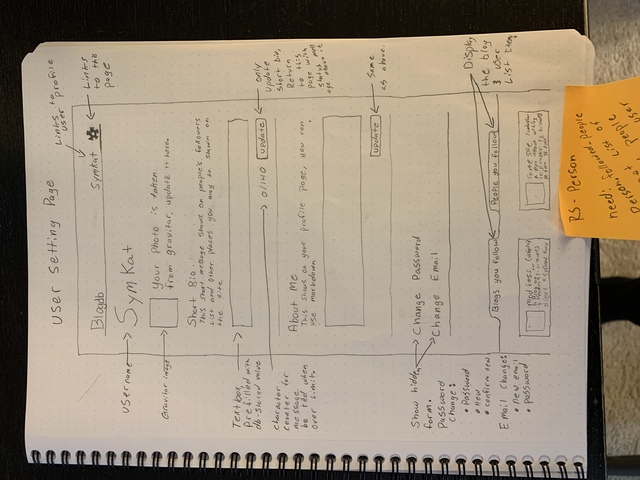 User Setting Page
Links to
user profile
Links
to this
page
Blogdb
Symkat
username
SymKat
Gravitar image
Your photo is taken
from gravitar, update it here.
Short Bio
This short message shows on people's followers
list and other places you may be shown on
the site
Textbox
prefilled with
db-stored value
0/140
update
only
update
short bio,
Return
to this
page with
Character
counter for
message,
be red when
over limit
About Me
This shows on your profile page, you can
use markdown
update
Same
as above.
Show hidden
form.
Change Password
Change Email
Password
Change:
• Password
• new
• confirm new
Email Change:
• new email
• password
Blogs you follow
People you follow
Display
the blog
& user
list items
RS-Person
need: followed-people